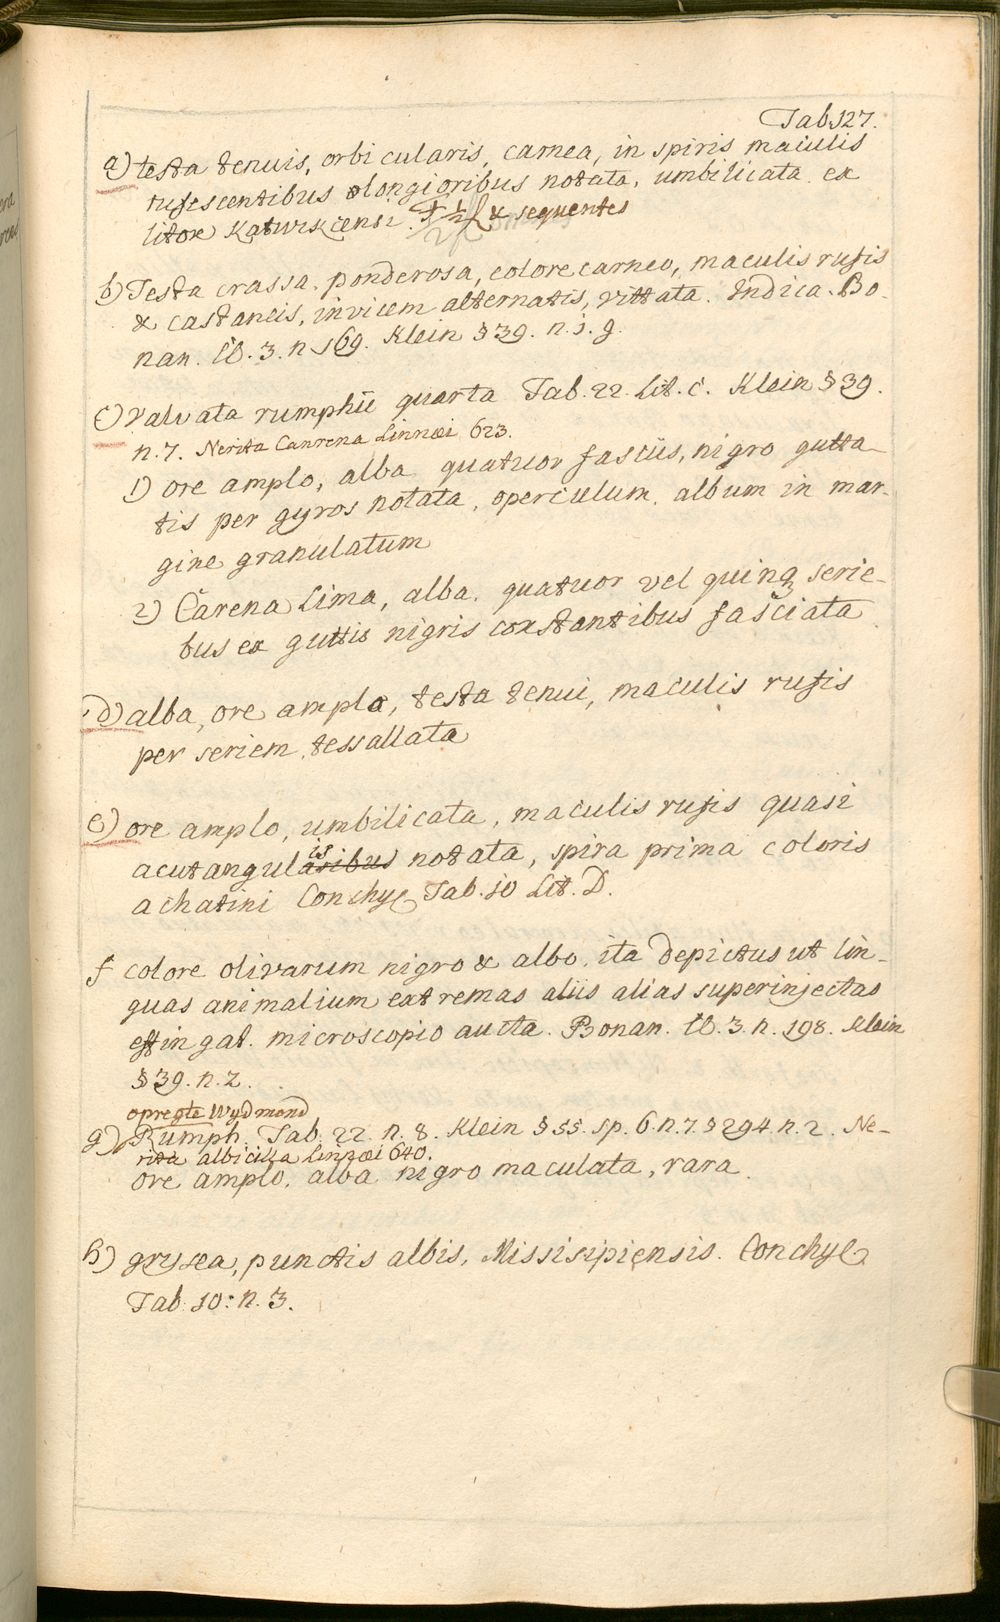 Tab. 127.
a) testa tenuis, orbicularis, carnea, in spiris maculis
rufescentibus olongioribus notata, umbilicata ex
litore Katwiscensi. & sequentes
b) Testa crassa. ponderosa, colore carneo, maculis rufis
& castaneis, invicem alternatis, vittata. Indica. Bo-
nan. lb. 3. n 169. Klein § 39. n. 1. g.
c) valvata rumphii quarta Tab. 22. Lit. c. Klein § 39.
n. 7. Nerita Canrena Linnæi 623.
1) ore amplo, alba quatuor fasciis, nigro gutta-
tis per gyros notata, operculum album in mar-
gine granulatum
2) Carena Lima, alba. quatuor vel quinq serie-
bus ex guttis nigris constantibus fasciata
d) alba, ore amplo, testa tenui, maculis rufis
per seriem tessallata
e) ore amplo, umbilicata, maculis rufis quasi
is
acutangularibus notata, spira prima coloris
achatini Conchyl Tab. 10 Lit. D.
f colore olivarum nigro & albo. ita depictus ut lin-
guas animalium extremas aliis alias superinjectas
effingat. microscopio aucta. Bonan. lb. 3. n. 198. Klein
§ 39. n. 2.
opregte Wydmond
g) Rumph. Tab. 22. n. 8. Klein § 55. sp. 6. n. 7. § 294. n. 2. Ne-
rita albicilla Linnæi 640.
ore amplo. alba nigro maculata, rara
h) grysea, punctis albis, Missisipiensis. Conchyl
Tab. 10: n. 3.